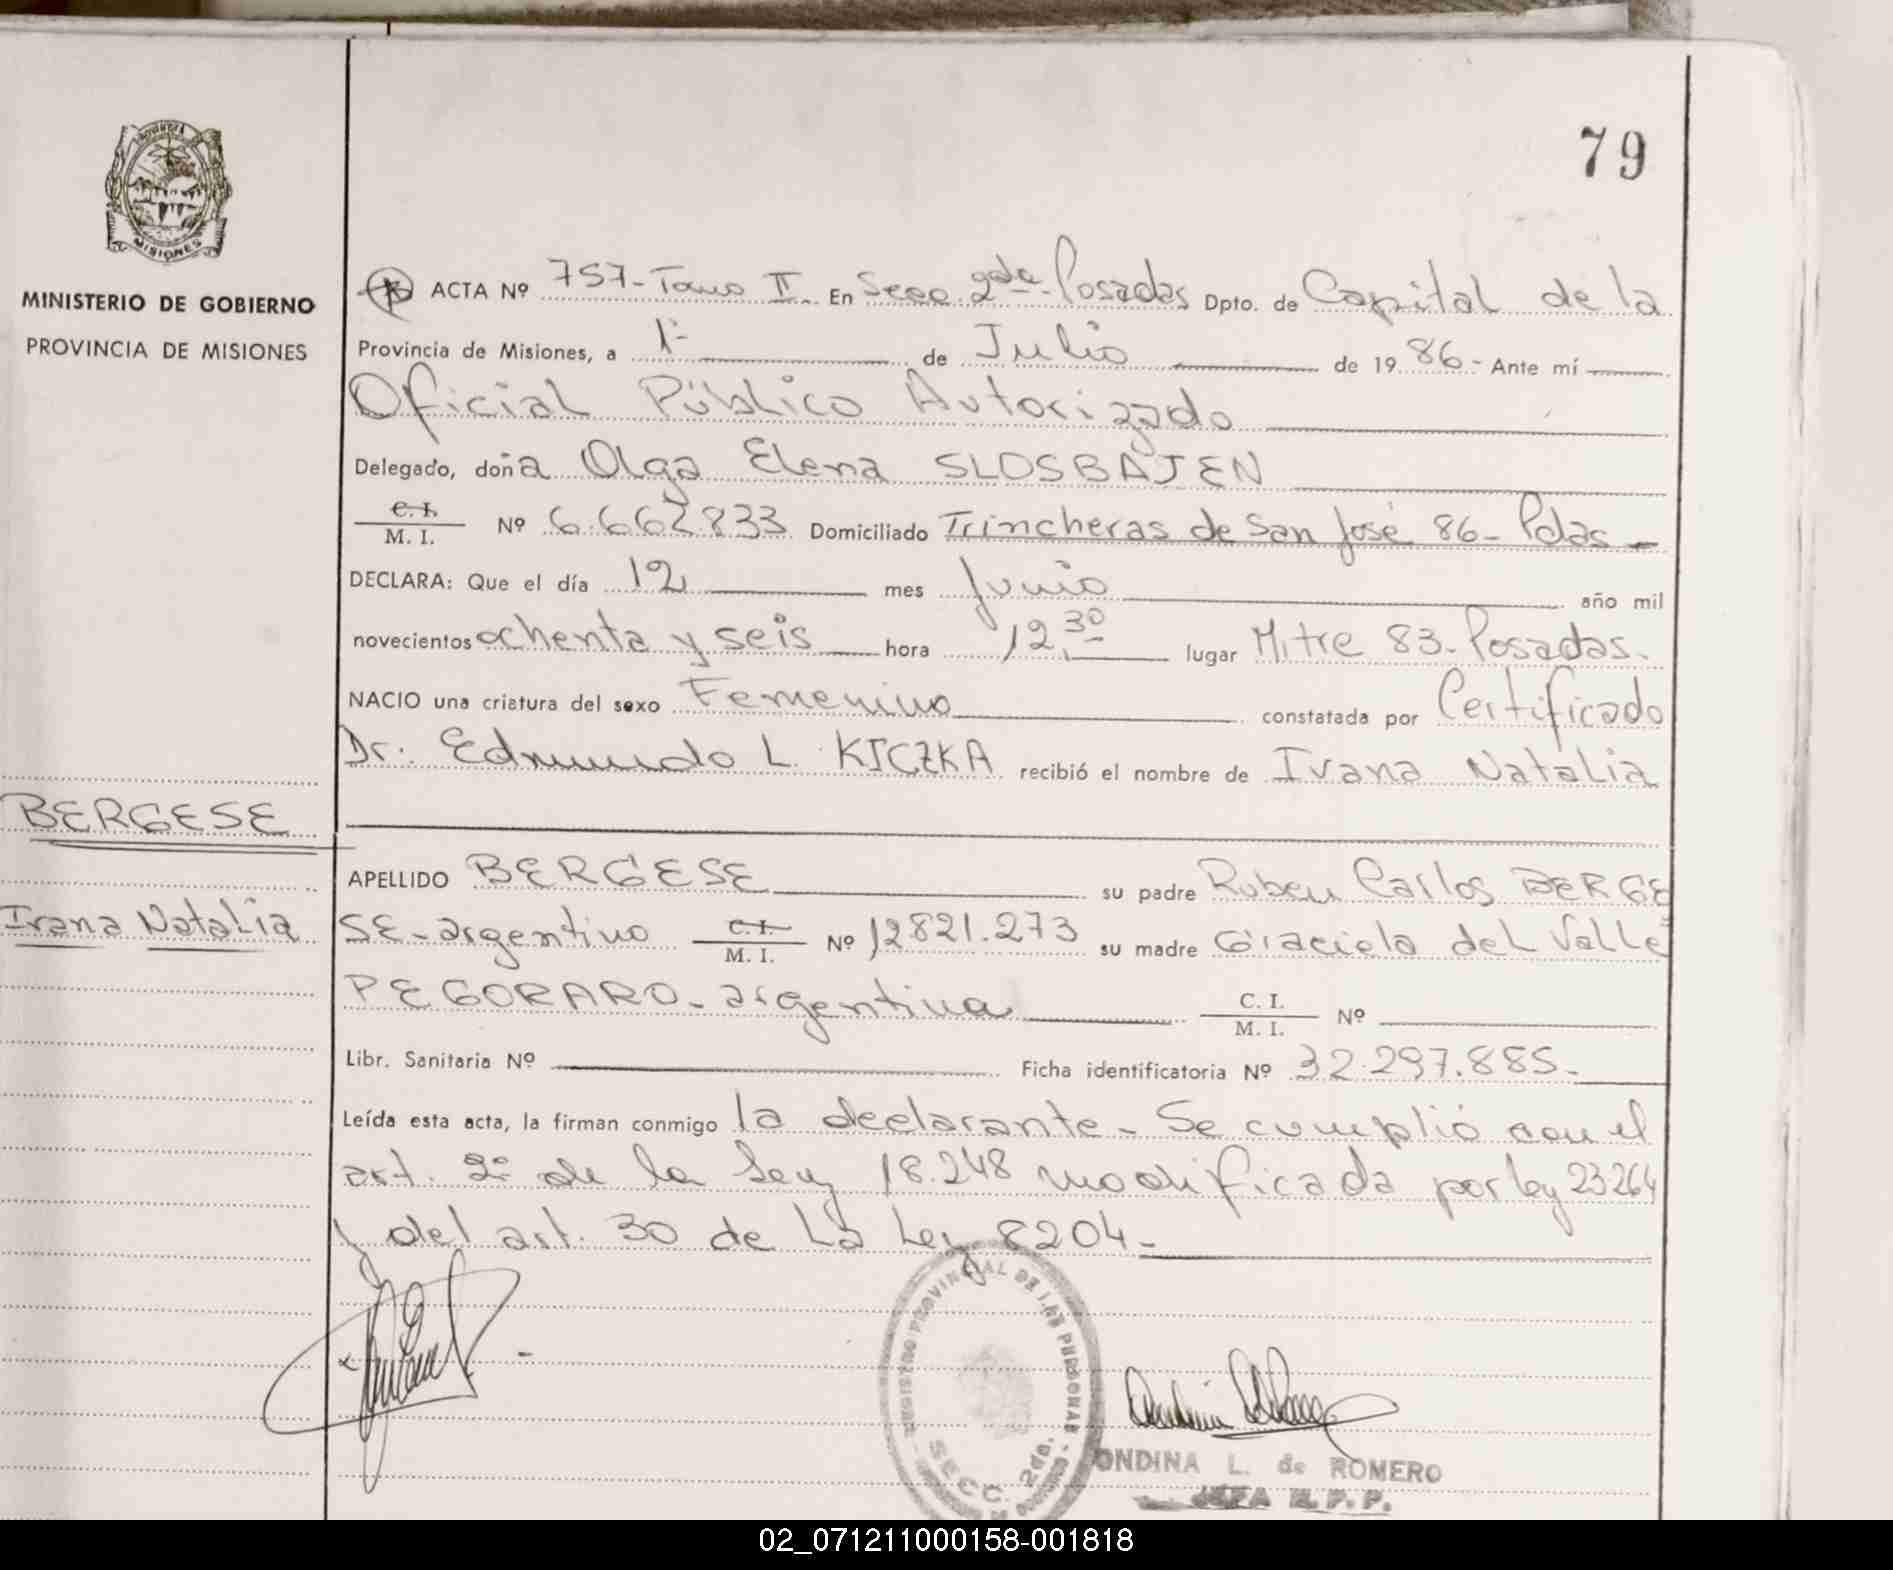 79
MISIONES
MINISTERIO DE GOBIERNO
PROVINCIA DE MISIONES
ACTA Nº 757-Tomo II. En Secc. 2da. Posadas Dpto. de Capital de la
Provincia de Misiones, a 1º de Julio de 1986.- Ante mí
Oficial Público Autorizado
Delegado, doña Olga Elena SLOSBAJEN
C. I. / M. I. Nº 6.662833 Domiciliado Trincheras de San José 86- Pdas -
DECLARA: Que el día 12 mes Junio año mil
novecientos ochenta y seis hora 12,30 lugar Mitre 83- Posadas.
NACIO una criatura del sexo Femenino constatada por Certificado
Dr. Edmundo L. KICZKA recibió el nombre de Ivana Natalia
BERGESE
APELLIDO BERGESE su padre Ruben Carlos BERGE
Ivana Natalia
SE-argentino C. I. / M. I. Nº 12821.273 su madre Graciela del Valle
PEGORARO-argentina C. I. / M. I. Nº
Libr. Sanitaria Nº Ficha identificatoria Nº 32.297.885.-
Leída esta acta, la firman conmigo la declarante- Se cumplió con el
art. 2º de la Ley 18.248 modificada por ley 23264
y del art. 30 de La Ley 8204-
REGISTRO PROVINCIAL DE LAS PERSONAS
SECC. 2da.
ONDINA L. de ROMERO
JEFA R.P.P.
02_071211000158-001818